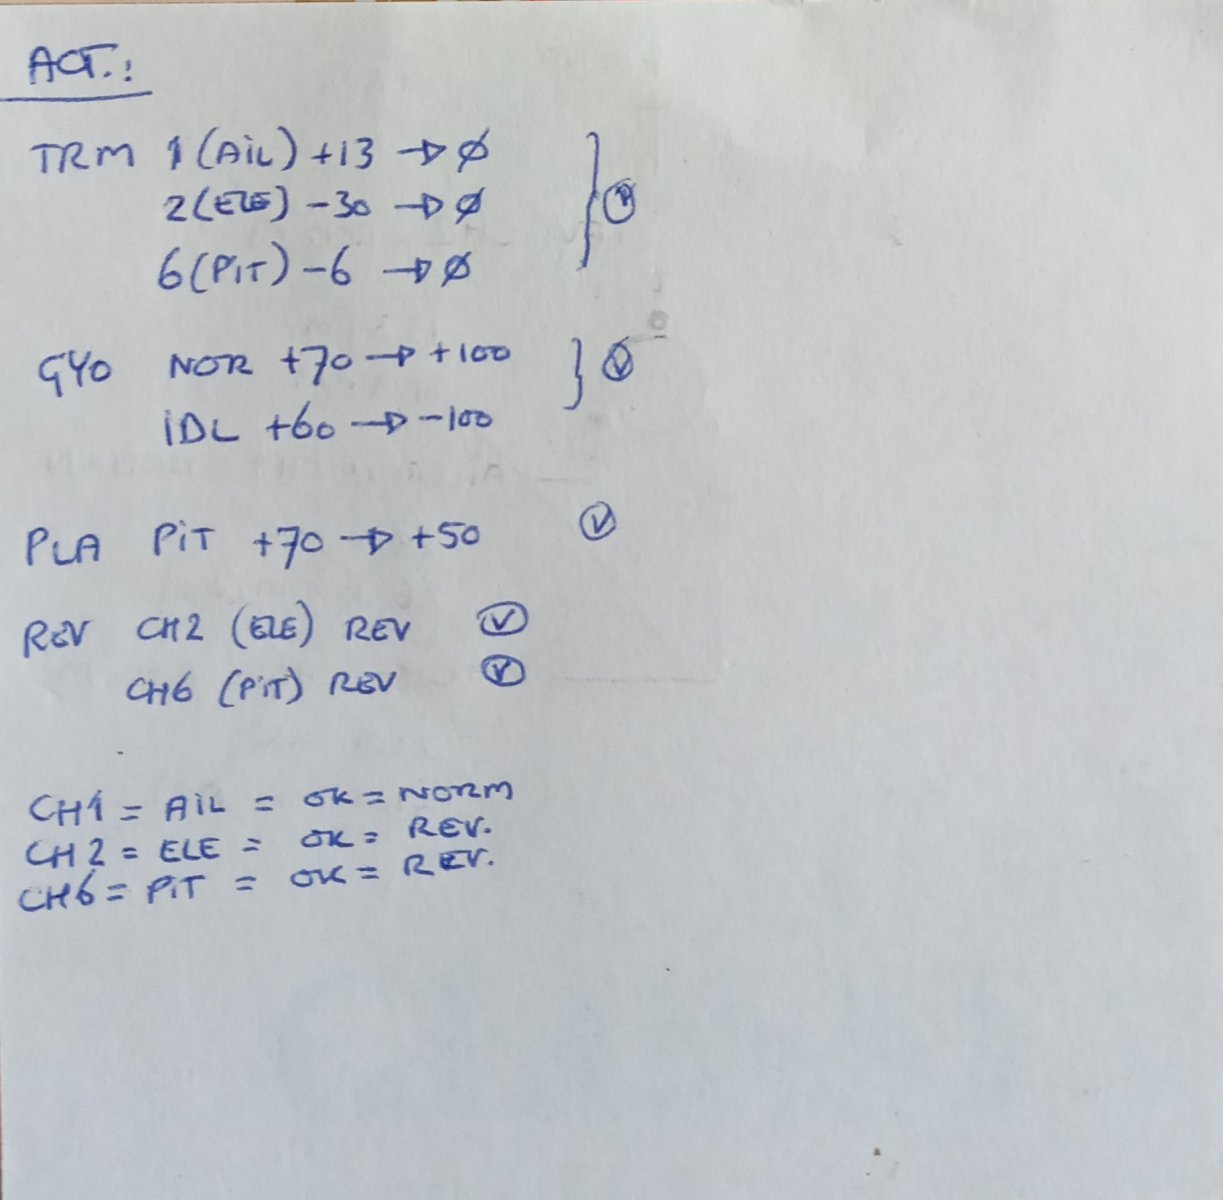 ACT.:
TRM 1 (AiL) +13 → Ø
2 (ELE) -30 → Ø
6 (PiT) -6 → Ø
GYO NOR +70 → +100
iDL +60 → -100
PLA PiT +70 → +50
REV CH2 (ELE) REV
CH6 (PiT) REV
CH1 = AiL = OK = NORM
CH2 = ELE = OK = REV.
CH6 = PiT = OK = REV.